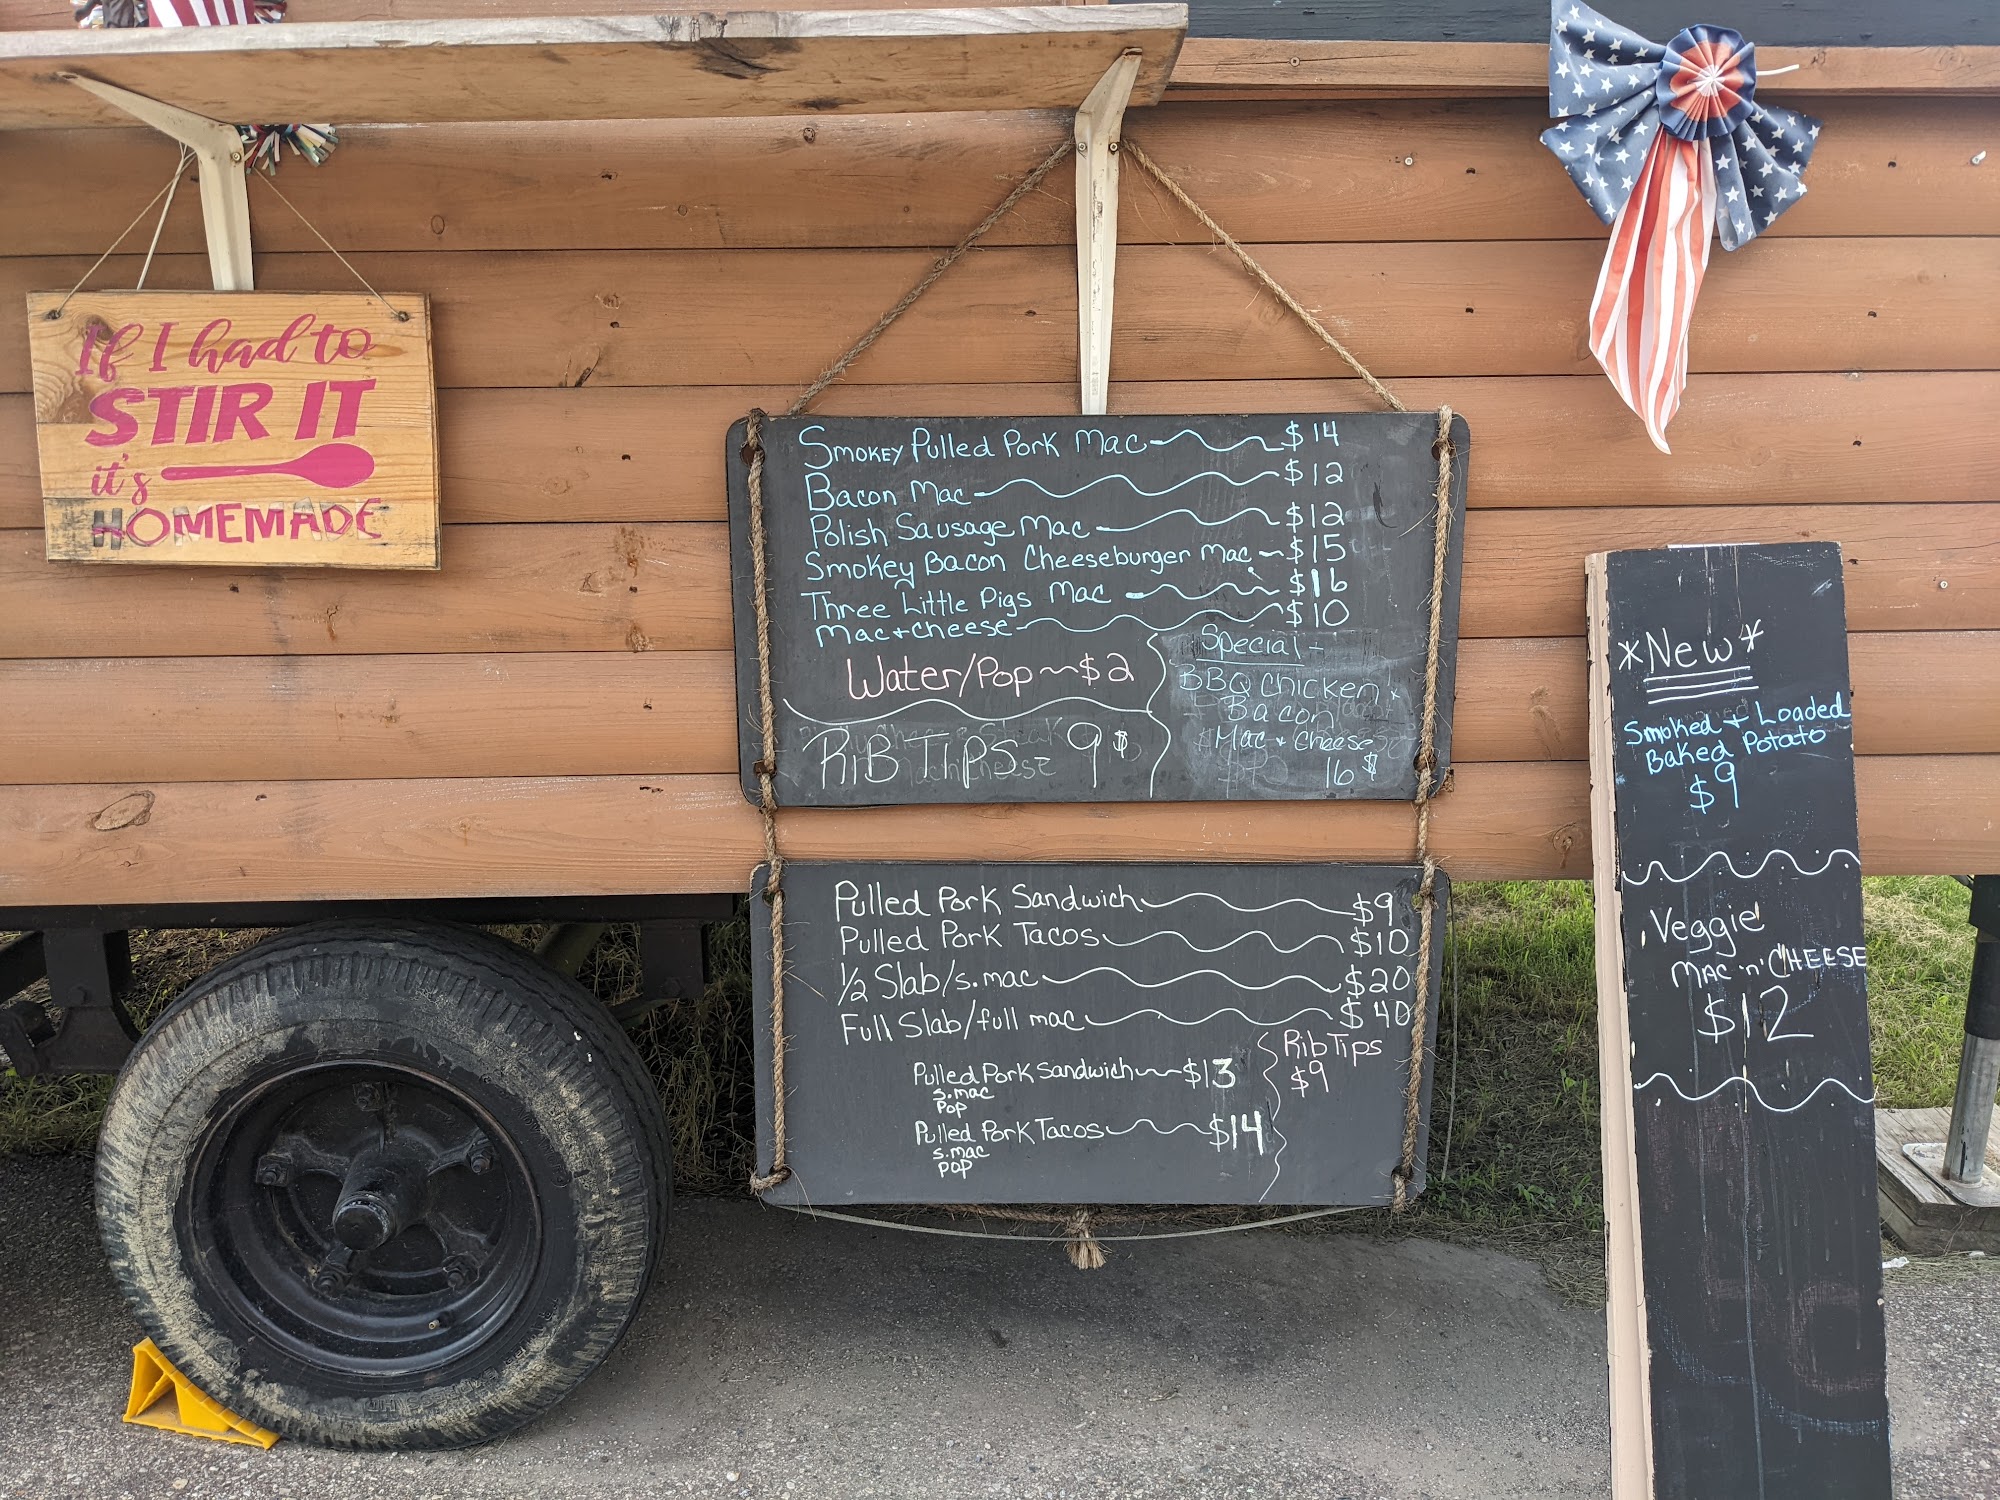 If I had to
STIR IT
it's
HOMEMADE
Smokey Pulled Pork Mac $14
Bacon Mac $12
Polish Sausage Mac $12
Smokey Bacon Cheeseburger Mac $15
Three Little Pigs Mac $16
Mac + Cheese $10
Water/Pop $2
RIB TIPS 9$
Special -
BBQ Chicken
Bacon
Mac + Cheese
16$
Pulled Pork Sandwich $9
Pulled Pork Tacos $10
1/2 Slab/s.mac $20
Full Slab/full mac $40
Pulled Pork Sandwich $13
s.mac
Pop
Pulled Pork Tacos $14
s.mac
pop
Rib Tips
$9
*New*
Smoked + Loaded
Baked Potato
$9
Veggie
MAC 'n' CHEESE
$12